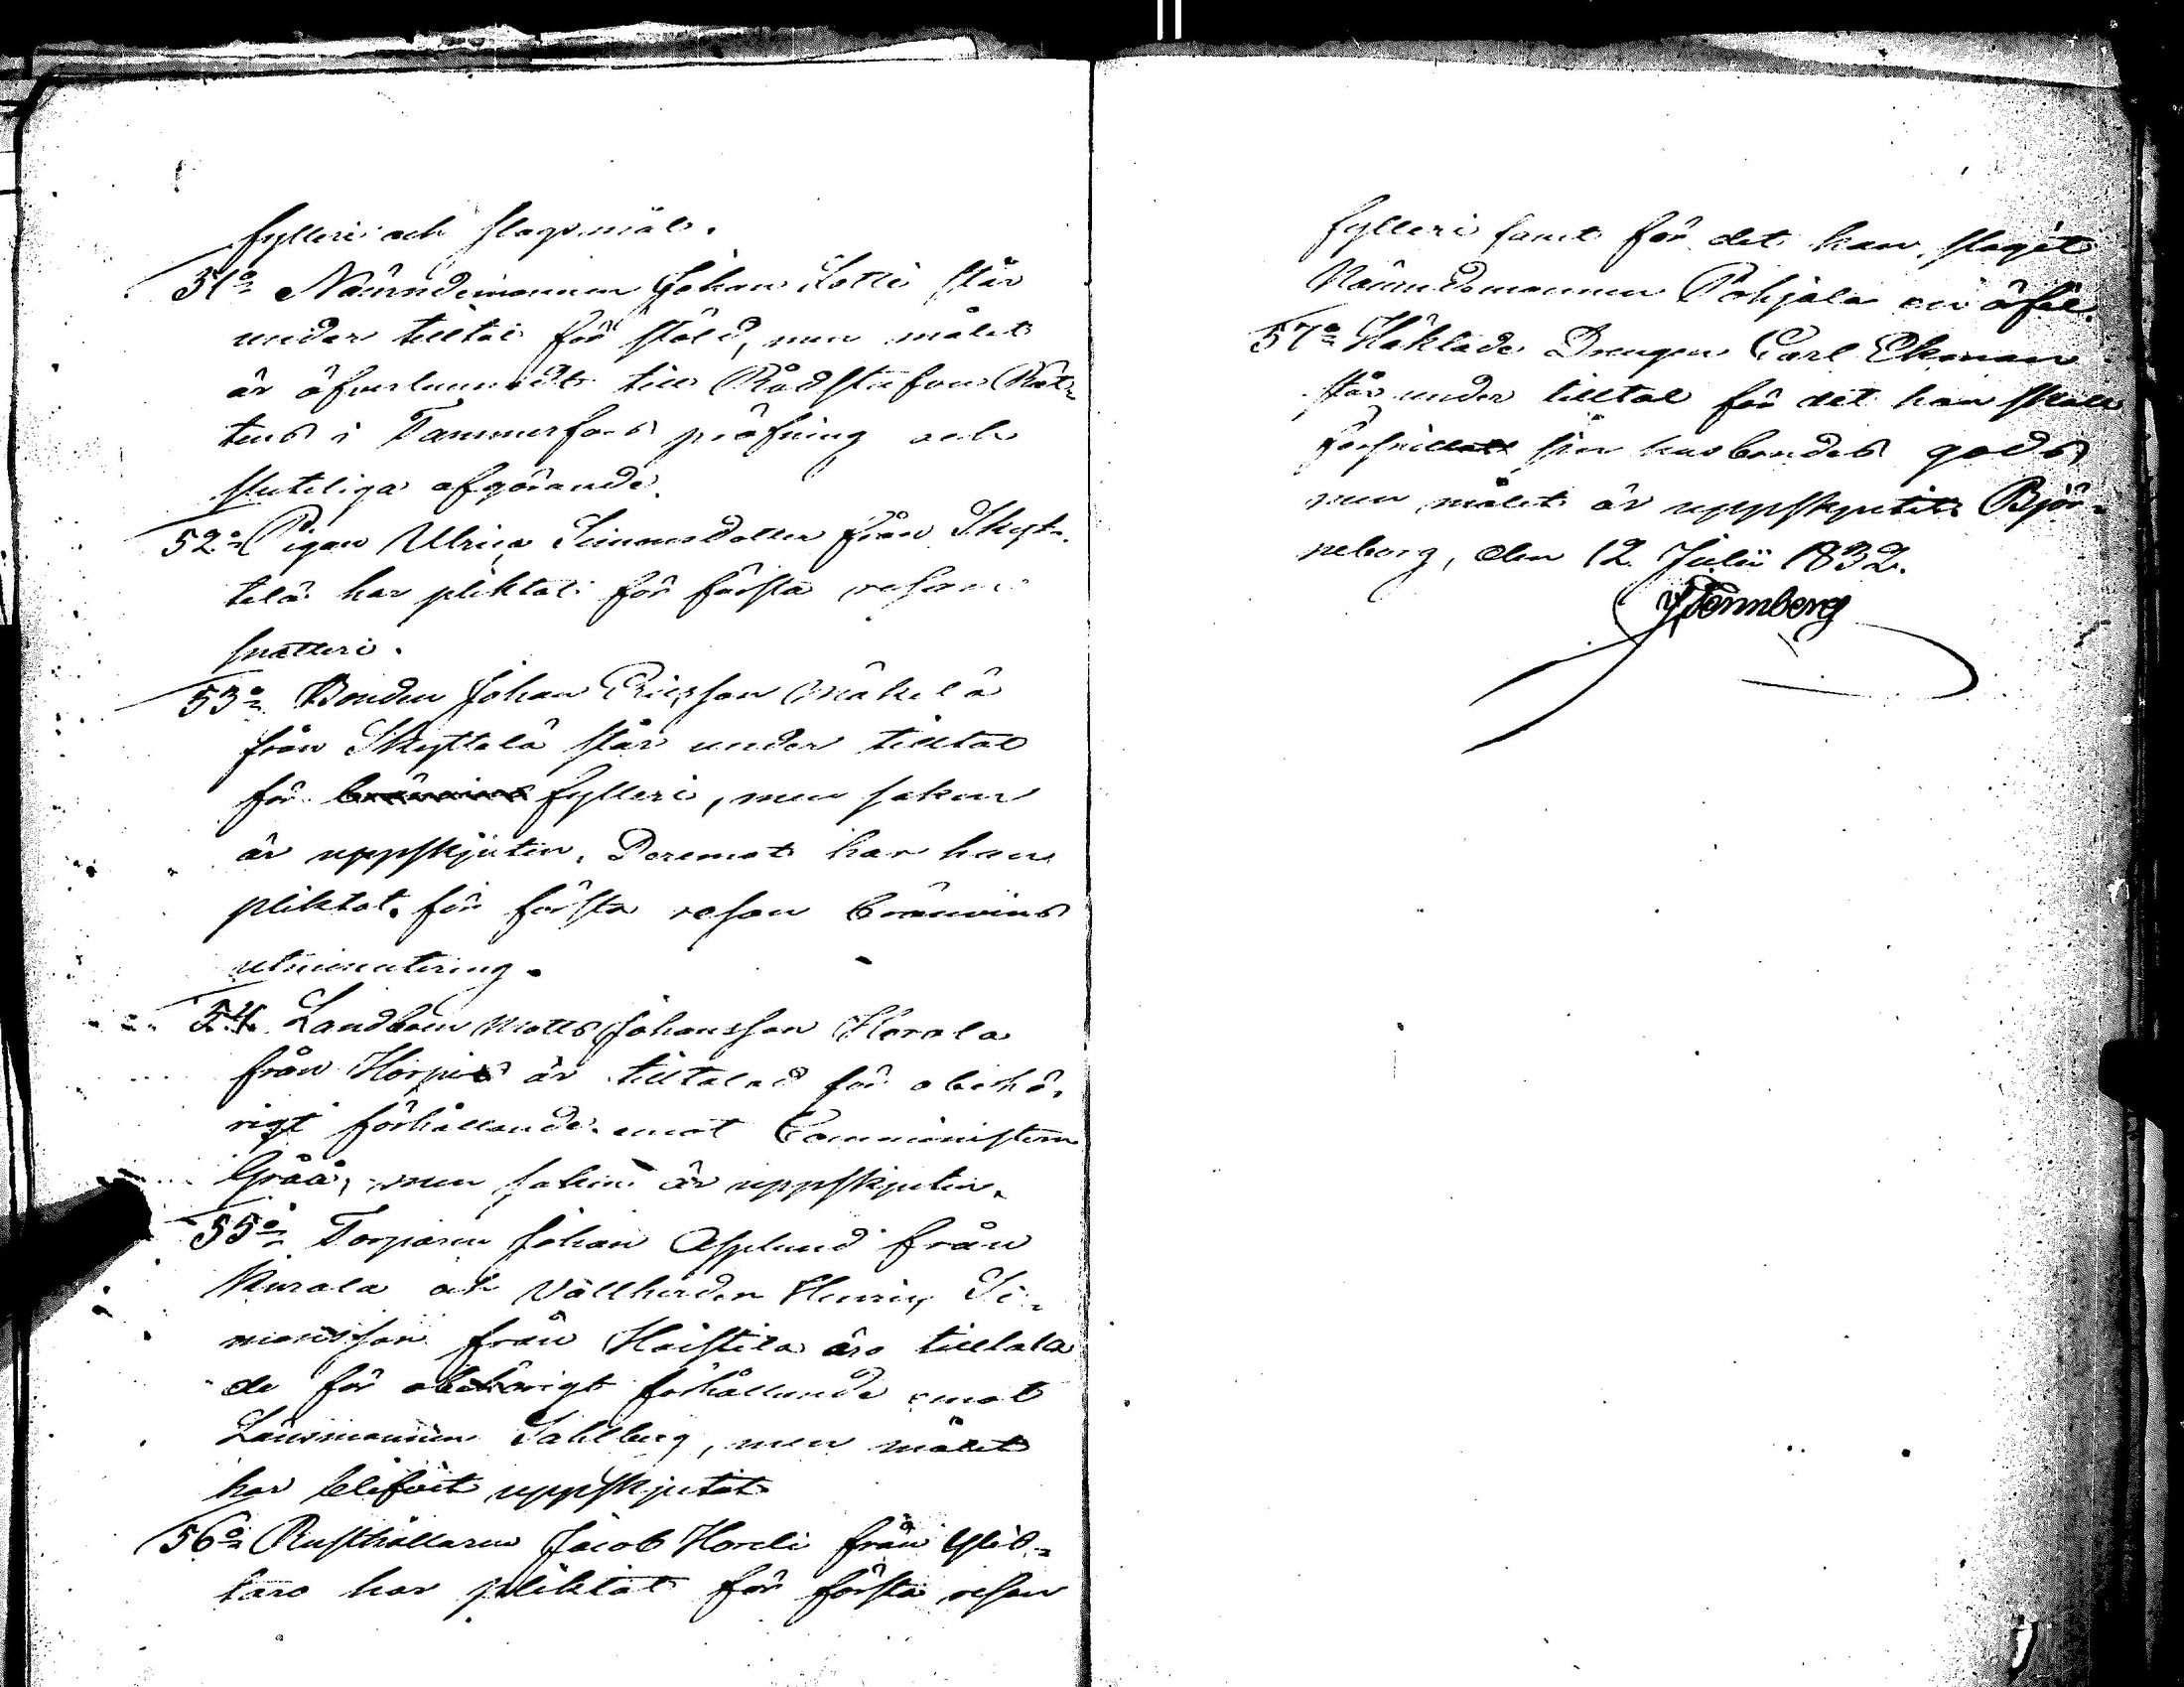 fylleri och slagsmål.
51o Nämndemannen Johan Sotti står
under tilltal för stöld, men målet
är öfverlemnadt till Rådstufvu Rät-
tens i Tammerfors pröfning och
slutliga afgörande.
52o Pigan Ulrica Simonsdotter från Skyt-
telä har pliktat för första resan
snatteri.
53o Bonden Johan Ericsson Mäkelä
från Skyttelä står under tilltal
för bränvins fylleri, men saken
är uppskjuten. Deremot har han
pliktat för första resan bränvins
utminutering.
54. Landbon Matts Johansson Horola
från Horpis är tilltalad för obehö-
rigt förhållande emot Comministern
Gråå, men saken är uppskjuten.
55o Torparen Johan Asplund från
Murala och Vallherden Henric Si-
monsson från Haistila äro tilltala
de för obehörigt förhållande emot
Länsmannen Sahlberg, men målet
har blifvit uppskjutit
56o Rusthållaren Jacob Horeli från Ylis-
taro har pliktat för första resan
fylleri samt för det han slagit
Nämndemannen Pohjala en örfil.
57o Häktade Drengen Carl Ekman
står under tilltal för det han skall
förskillat sin husbondes gods
men målet är uppskjutit. Björ-
neborg, den 12 Julii 1832.